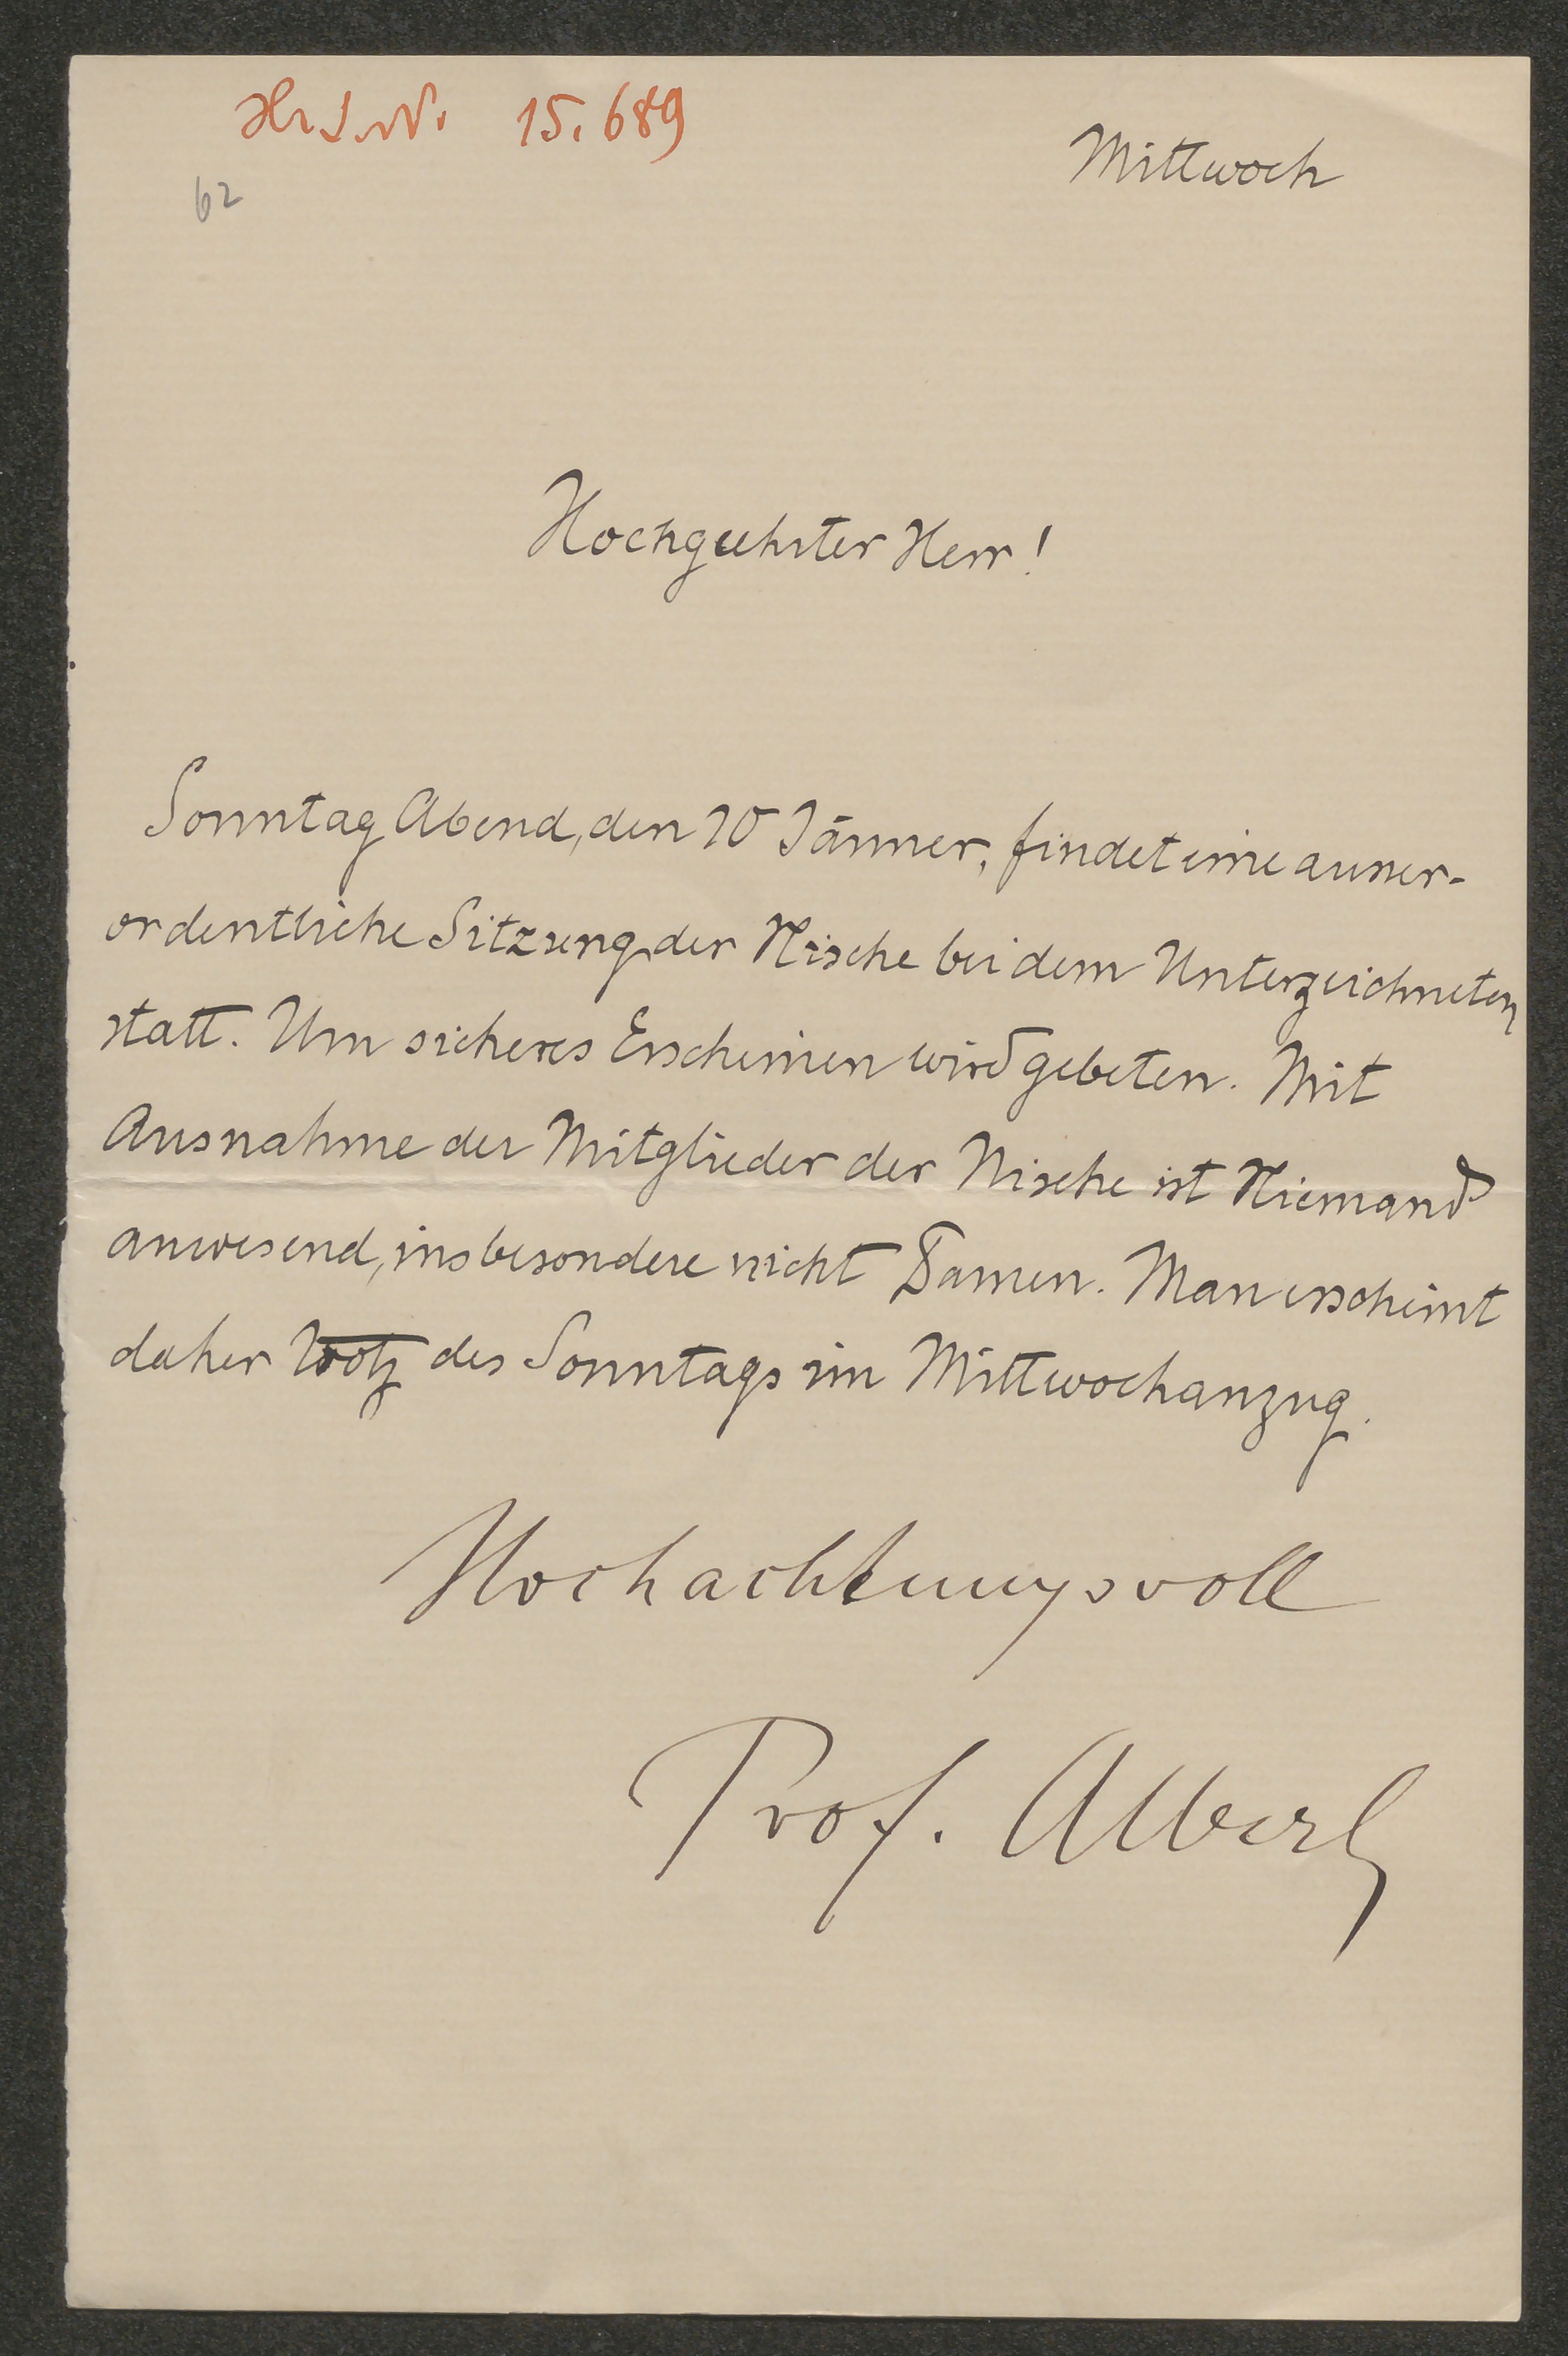 H. I. N. 15.689
62
Mittwoch
Hochgeehrter Herr!
Sonntag Abend, den 10 Jänner, findet eine ausser-
ordentliche Sitzung der Nische bei dem Unterzeichneten
statt. Um sicheres Erscheinen wird gebeten. Mit
Ausnahme der Mitglieder der Nische ist Niemand
anwesend, insbesondere nicht Damen. Man erscheint
daher trotz des Sonntags im Mittwochanzug.
Hochachtungsvoll
Prof. Albert